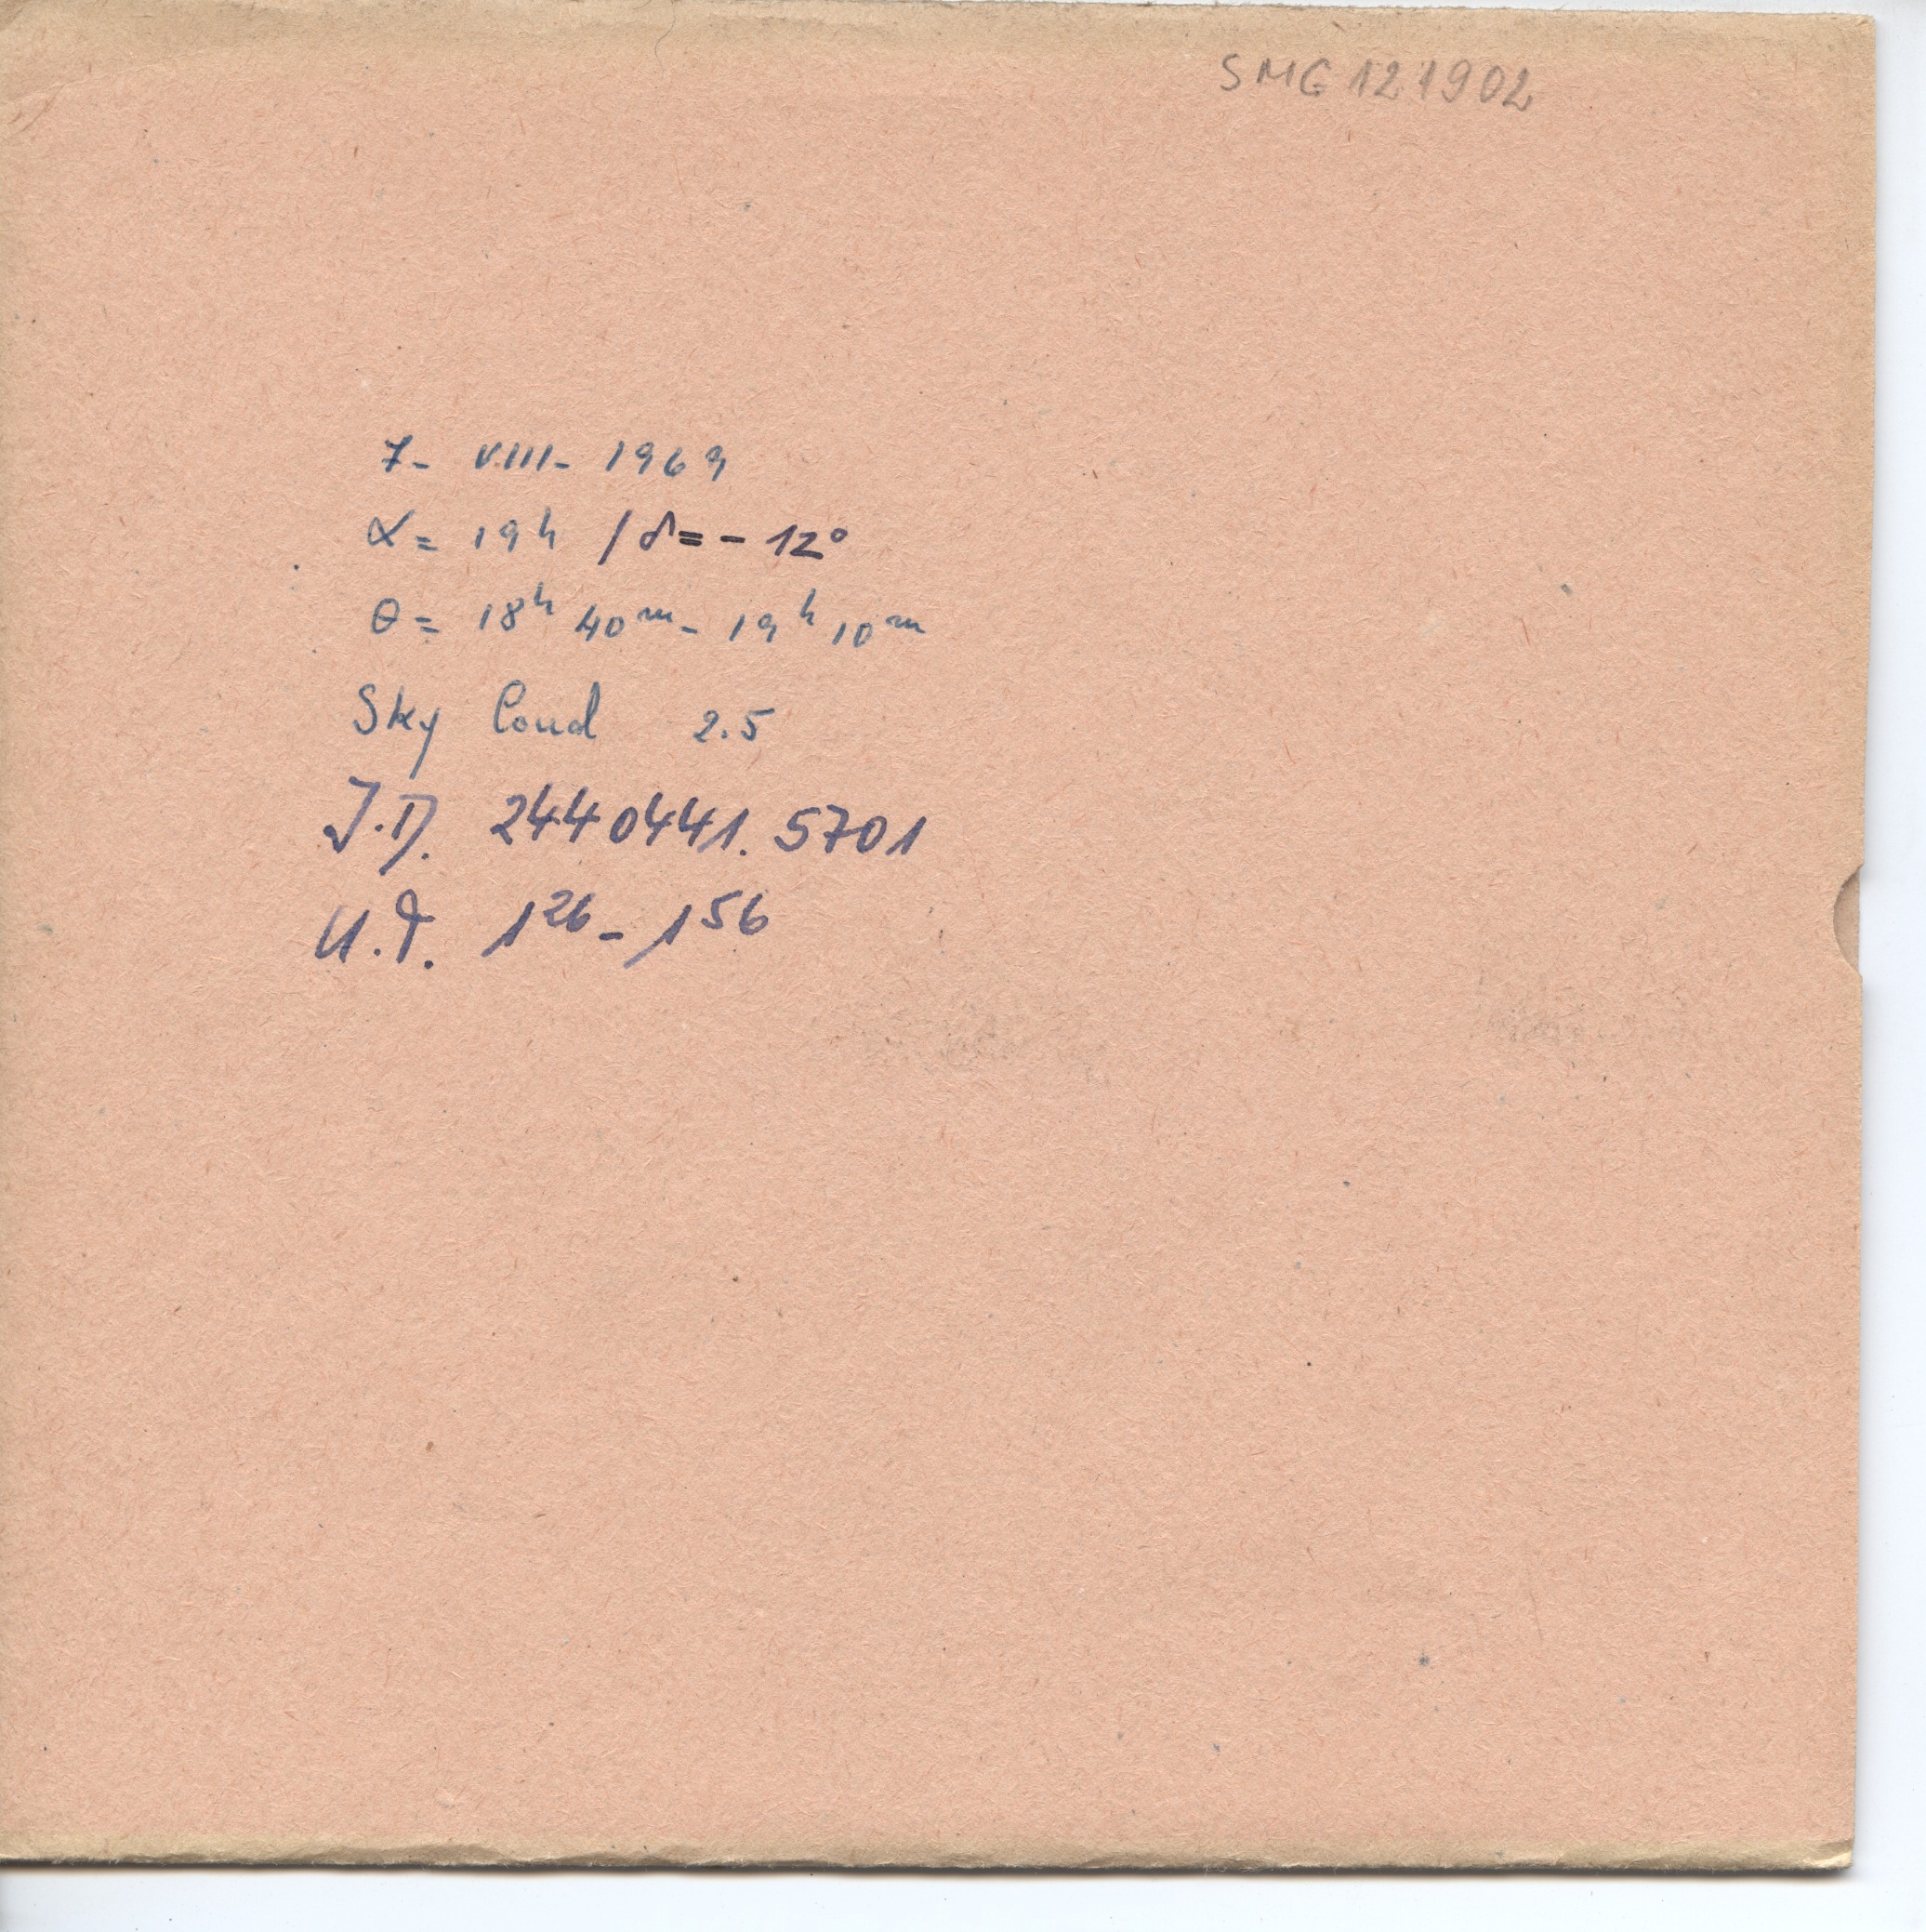 SMG 121902
7- VIII- 1969
α = 19ʰ / δ = - 12°
θ = 18ʰ 40ᵐ - 19ʰ 10ᵐ
Sky Cond 2.5
J.D. 2440441.5701
U.T. 1²⁶ - 1⁵⁶